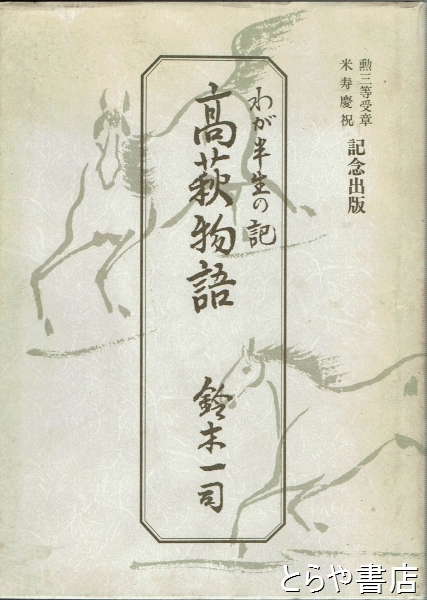 勲三等受章
米寿慶祝
記念出版
わが半生の記
高萩物語
鈴木一司
とらや書店